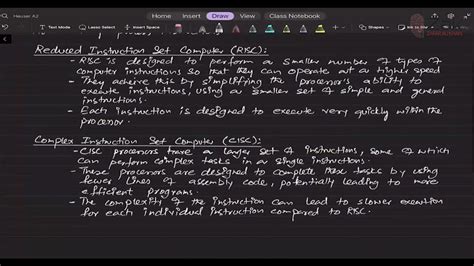 Heuser A2
Home Insert Draw View Class Notebook
Text Mode Lasso Select Insert Space
Shapes Ink to Shape Ink to
Reduced Instruction Set Computer (RISC):
- RISC is designed to perform a smaller number of types of
computer instructions so that they can operate at a higher speed
- They acheive this by simplifying the processor's ability to
execute instructions, using a smaller set of simple and general
instructions.
- Each instruction is designed to execute very quickly within the
processor.
Complex Instruction Set Computer (CISC):
- CISC processors have a larger set of instructions, some of which
can perform complex tasks in a single instructions.
- These processors are designed to complete tasks by using
fewer lines of assembly code, potentially leading to more
efficient programs.
- The complexity of the instruction can lead to slower execution
for each individual instruction compared to RISC.